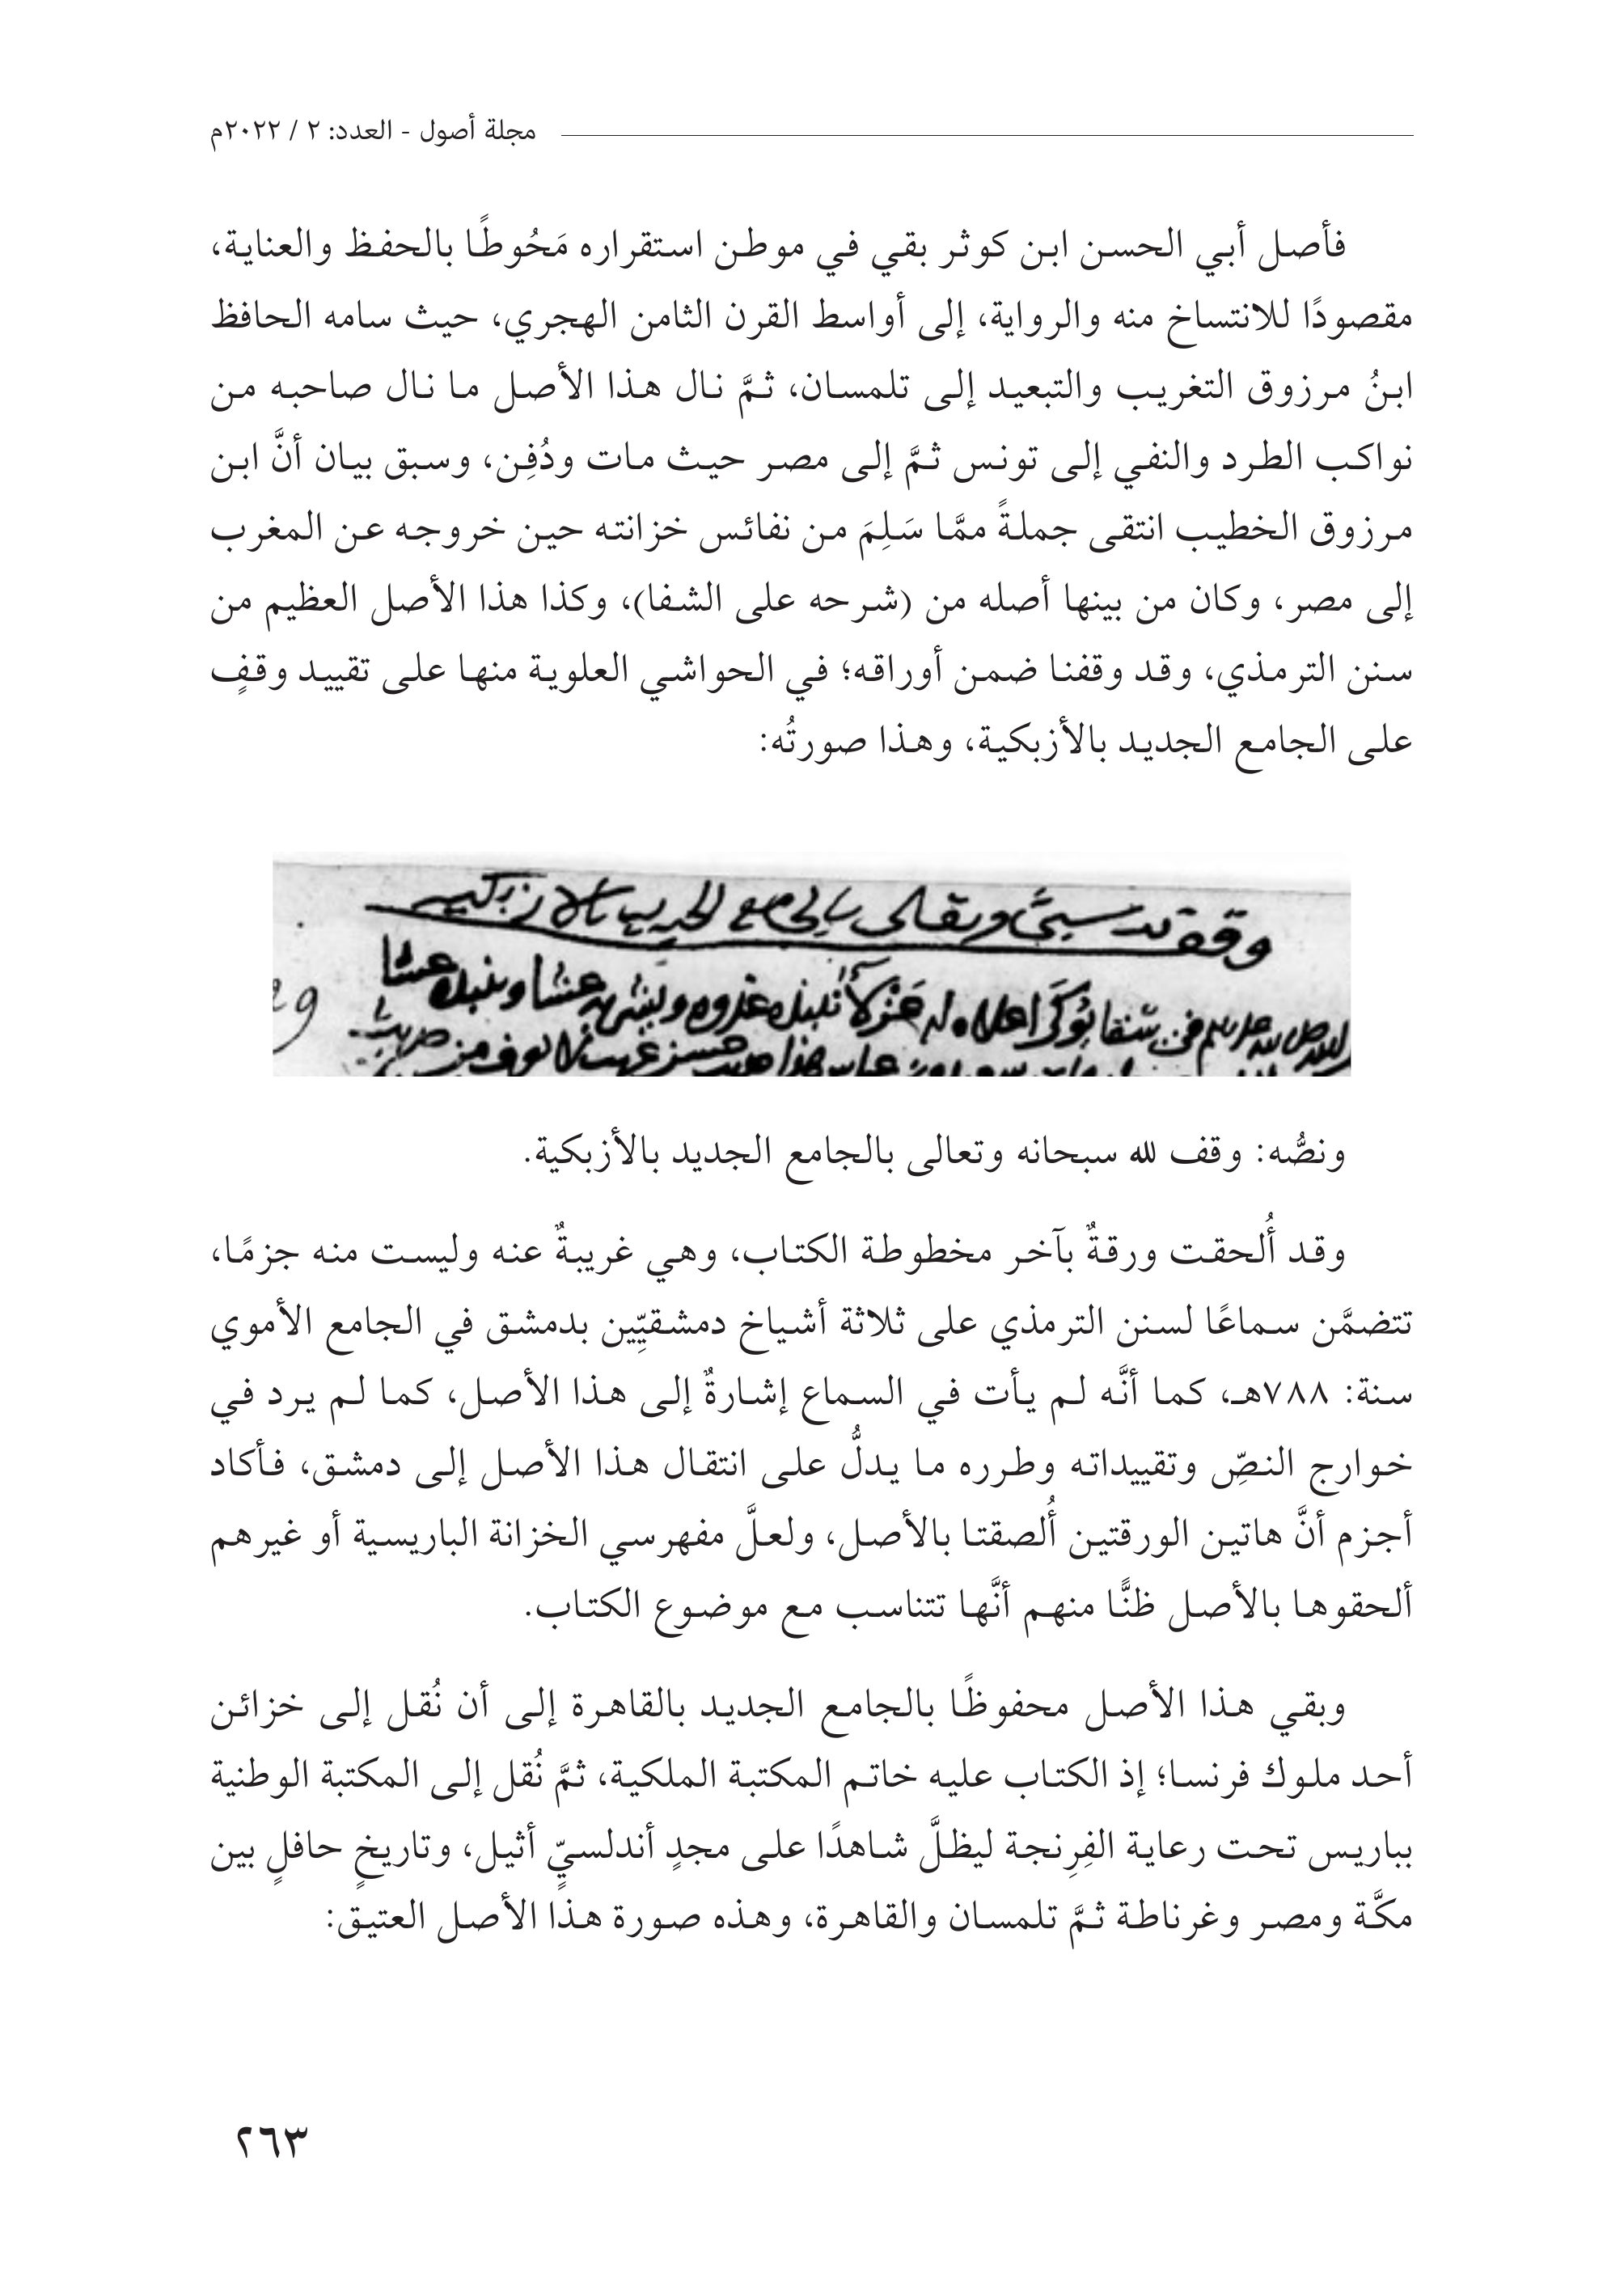 مجلة أصول - العدد: ٢ / ٢٠٢٢م
فأصل أبي الحسن ابن كوثر بقي في موطن استقراره مَحُوطًا بالحفظ والعناية،
مقصودًا للانتساخ منه والرواية، إلى أواسط القرن الثامن الهجري، حيث سامه الحافظ
ابنُ مرزوق التغريب والتبعيد إلى تلمسان، ثمَّ نال هذا الأصل ما نال صاحبه من
نواكب الطرد والنفي إلى تونس ثمَّ إلى مصر حيث مات ودُفِن، وسبق بيان أنَّ ابن
مرزوق الخطيب انتقى جملةً ممَّا سَلِمَ من نفائس خزانته حين خروجه عن المغرب
إلى مصر، وكان من بينها أصله من (شرحه على الشفا)، وكذا هذا الأصل العظيم من
سنن الترمذي، وقد وقفنا ضمن أوراقه؛ في الحواشي العلوية منها على تقييد وقفٍ
على الجامع الجديد بالأزبكية، وهذا صورتُه:
وقف لله سبحانه وتعالى بالجامع الجديد بالازبكية
ونصُّه: وقف لله سبحانه وتعالى بالجامع الجديد بالأزبكية.
وقد أُلحقت ورقةٌ بآخر مخطوطة الكتاب، وهي غريبةٌ عنه وليست منه جزمًا،
تتضمَّن سماعًا لسنن الترمذي على ثلاثة أشياخ دمشقيِّين بدمشق في الجامع الأموي
سنة: ٧٨٨هـ، كما أنَّه لم يأت في السماع إشارةٌ إلى هذا الأصل، كما لم يرد في
خوارج النصِّ وتقييداته وطرره ما يدلُّ على انتقال هذا الأصل إلى دمشق، فأكاد
أجزم أنَّ هاتين الورقتين أُلصقتا بالأصل، ولعلَّ مفهرسي الخزانة الباريسية أو غيرهم
ألحقوها بالأصل ظنًّا منهم أنَّها تتناسب مع موضوع الكتاب.
وبقي هذا الأصل محفوظًا بالجامع الجديد بالقاهرة إلى أن نُقل إلى خزائن
أحد ملوك فرنسا؛ إذ الكتاب عليه خاتم المكتبة الملكية، ثمَّ نُقل إلى المكتبة الوطنية
بباريس تحت رعاية الفِرِنجة ليظلَّ شاهدًا على مجدٍ أندلسيٍّ أثيل، وتاريخٍ حافلٍ بين
مكَّة ومصر وغرناطة ثمَّ تلمسان والقاهرة، وهذه صورة هذا الأصل العتيق:
٢٦٣